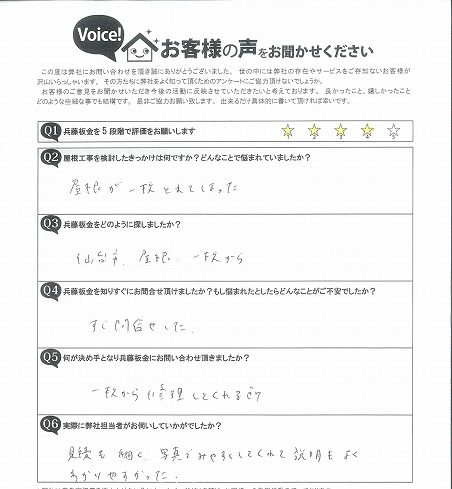 Voice!
お客様の声をお聞かせください
この度は弊社にお問い合わせを頂き誠にありがとうございました。世の中には弊社の存在やサービスをご存知ないお客様が
沢山いらっしゃいます。その方たちに弊社をよく知って頂くためのアンケートにご協力頂けないでしょうか。
お客様のご意見をお聞かせいただき今後の活動に反映させていただきたいと考えております。良かったこと、嬉しかったこと
どのような些細な事でも結構です。是非ご協力お願い致します。出来るだけ具体的に書いて頂ければ幸いです。
Q1 兵藤板金を5段階で評価をお願いします
1 2 3 4 5
Q2 屋根工事を検討したきっかけは何ですか?どんなことで悩まれていましたか?
屋根が一枚とれてしまった
Q3 兵藤板金をどのように探しましたか?
仙台市、屋根、一枚から
Q4 兵藤板金を知りすぐにお問合せ頂けましたか?もし悩まれたとしたらどんなことがご不安でしたか?
すぐ問合せした。
Q5 何が決め手となり兵藤板金にお問い合わせ頂きましたか?
一枚から修理してくれる
Q6 実際に弊社担当者がお伺いしていかがでしたか?
見積も細く、写真でみやすくしてくれて説明もよく
わかりやすかった。